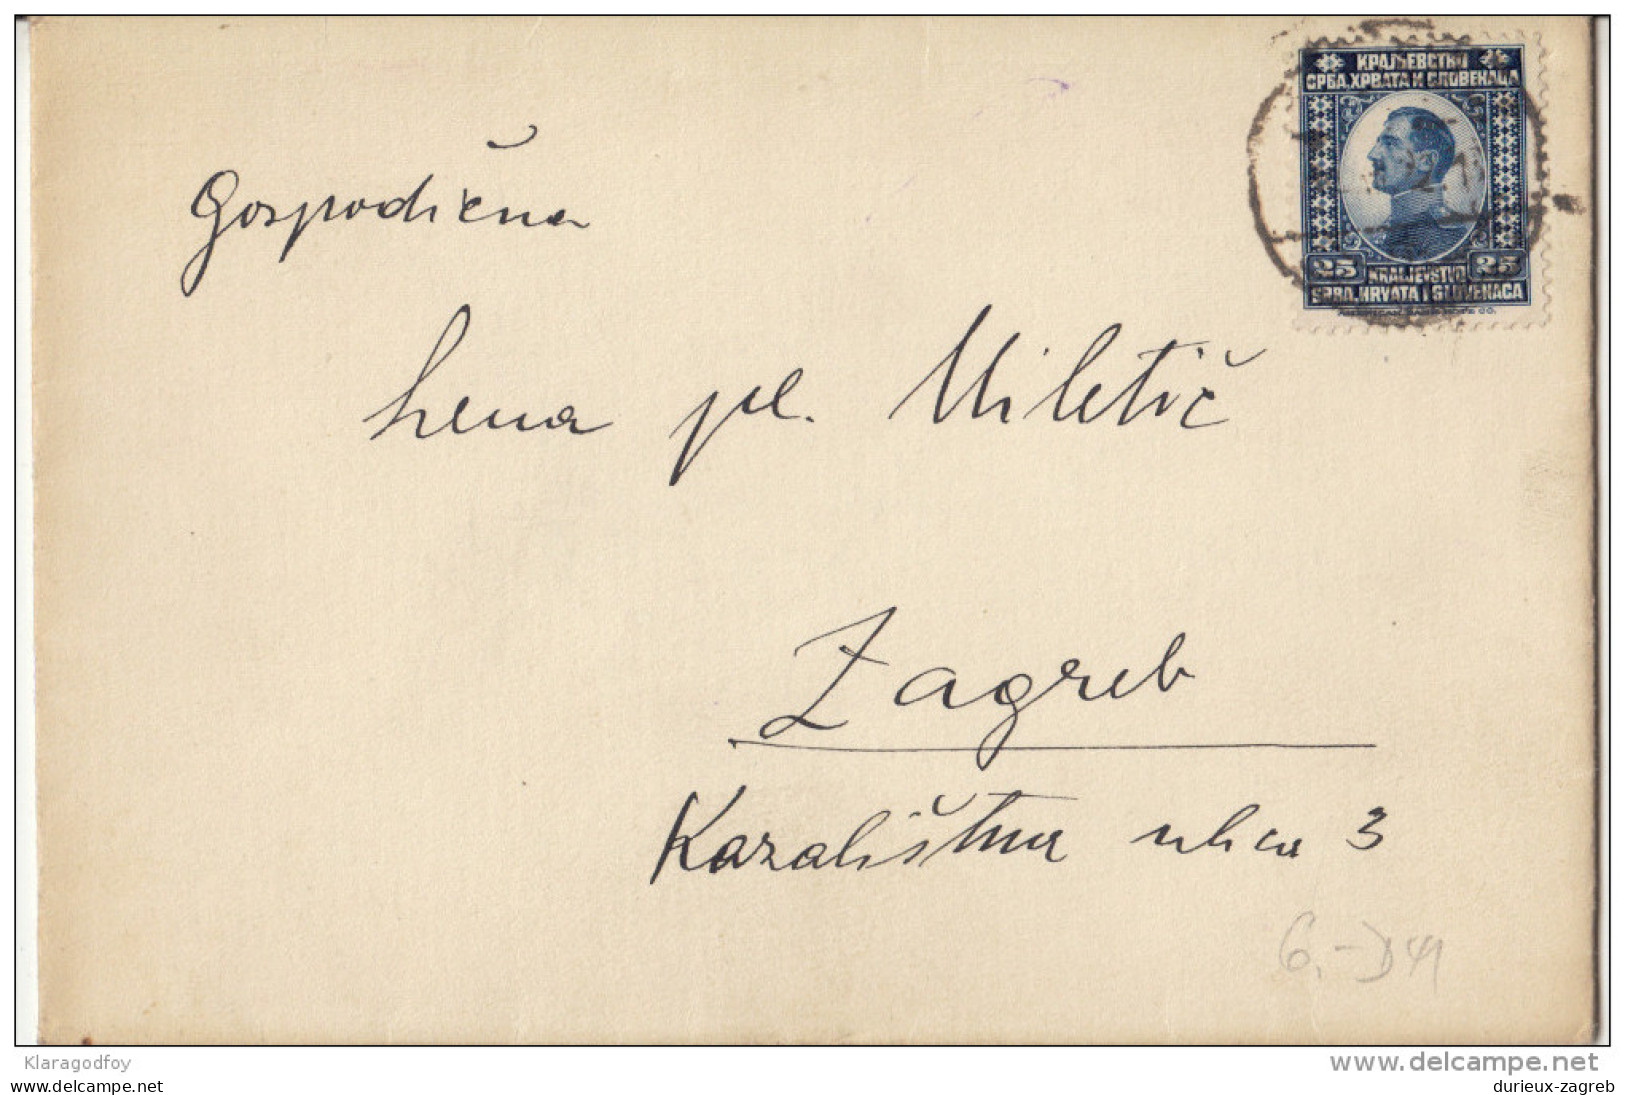 КРАЉЕВСТВО
СРБА, ХРВАТА И СЛОВЕНАЦА
25 KRALJEVSTVO 25
SRBA, HRVATA I SLOVENACA
AMERICAN BANK NOTE CO.
Gospodična
Lena pl. Miletič
Zagreb
Kazalištna ulica 3
6,- DM
Klaragodfoy
delcampe.net
delcampe.net
durieux-zagreb